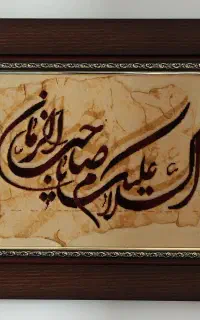 السلام علیکم یا صاحب الزمان